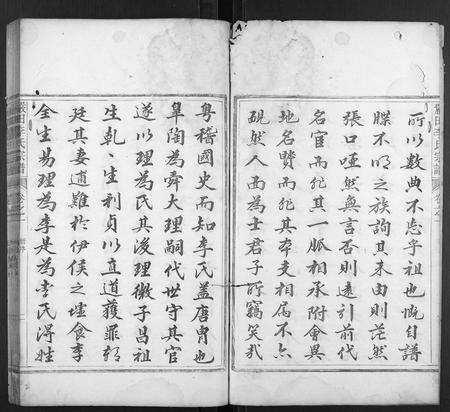 所以數典不忘乎祖也慨自譜
牒不明之族詢其來由則茫然
張口嗫然無言否則遠引前代
名宦而非其一脈相承附會異
地名賢而非其本支相屬不亦
硯然人面為士君子所竊笑哉
粵稽國史而知李氏蓋唐胄也
臯陶為舜大理嗣代世守其官
遂以理為氏其後理徵子昌祖
生乾乾生利貞以直道獲罪
廷其妻逃難於伊侯之墟食李
全生易理為李是為李氏得姓
嚴田李氏宗譜
卷之
A